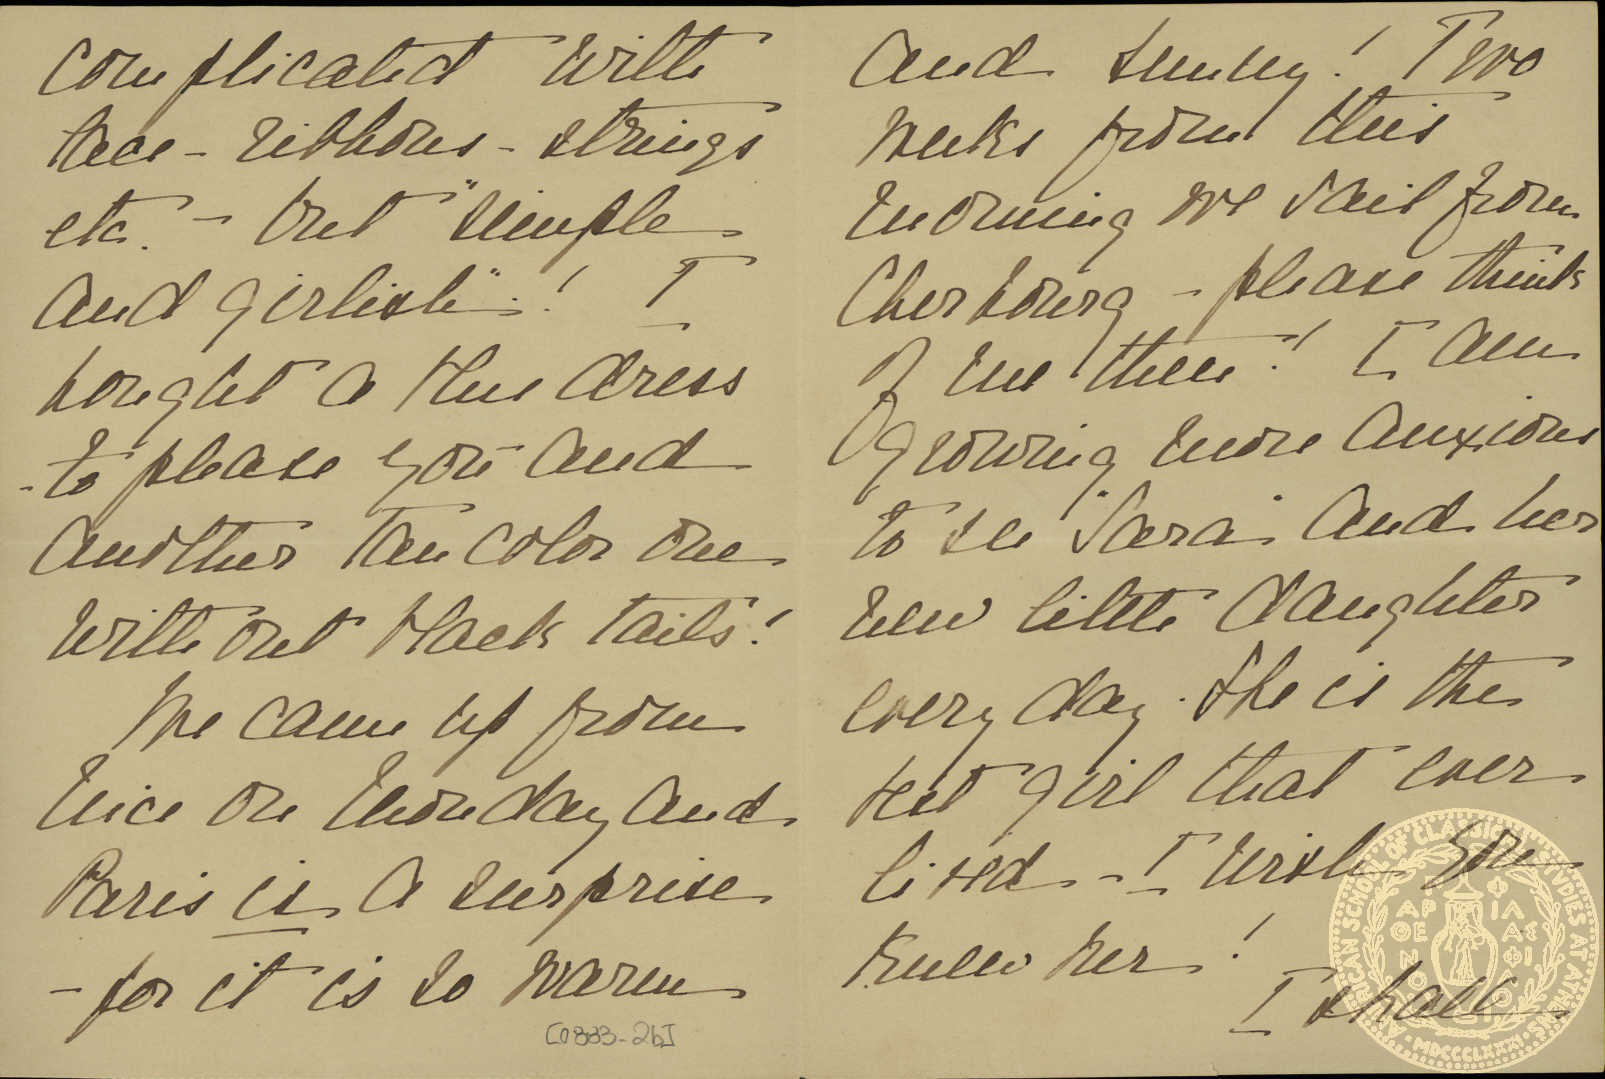 complicated with
lace - ribbons - strings
etc. - but "simple
and girlish". ! I
bought a blue dress
- to please you - and
another tan color one
without black tails !
We came up from
Nice on Monday and
Paris is a surprise
- for it is so warm
[0883-2b]
and sunny ! Two
weeks from this
morning we sail from
Cherbourg - please think
of me then ! I am
growing more anxious
to see "Sara" and her
new little daughter
every day. She is the
best girl that ever
lived - I wish you
knew her !
I shall
AMERICAN SCHOOL OF CLASSICAL STUDIES AT ATHENS
MDCCCLXXXI
ΠΑΡΘΕΝΟΥ
ΦΙΛΑΣ ΦΙΛΟΙ